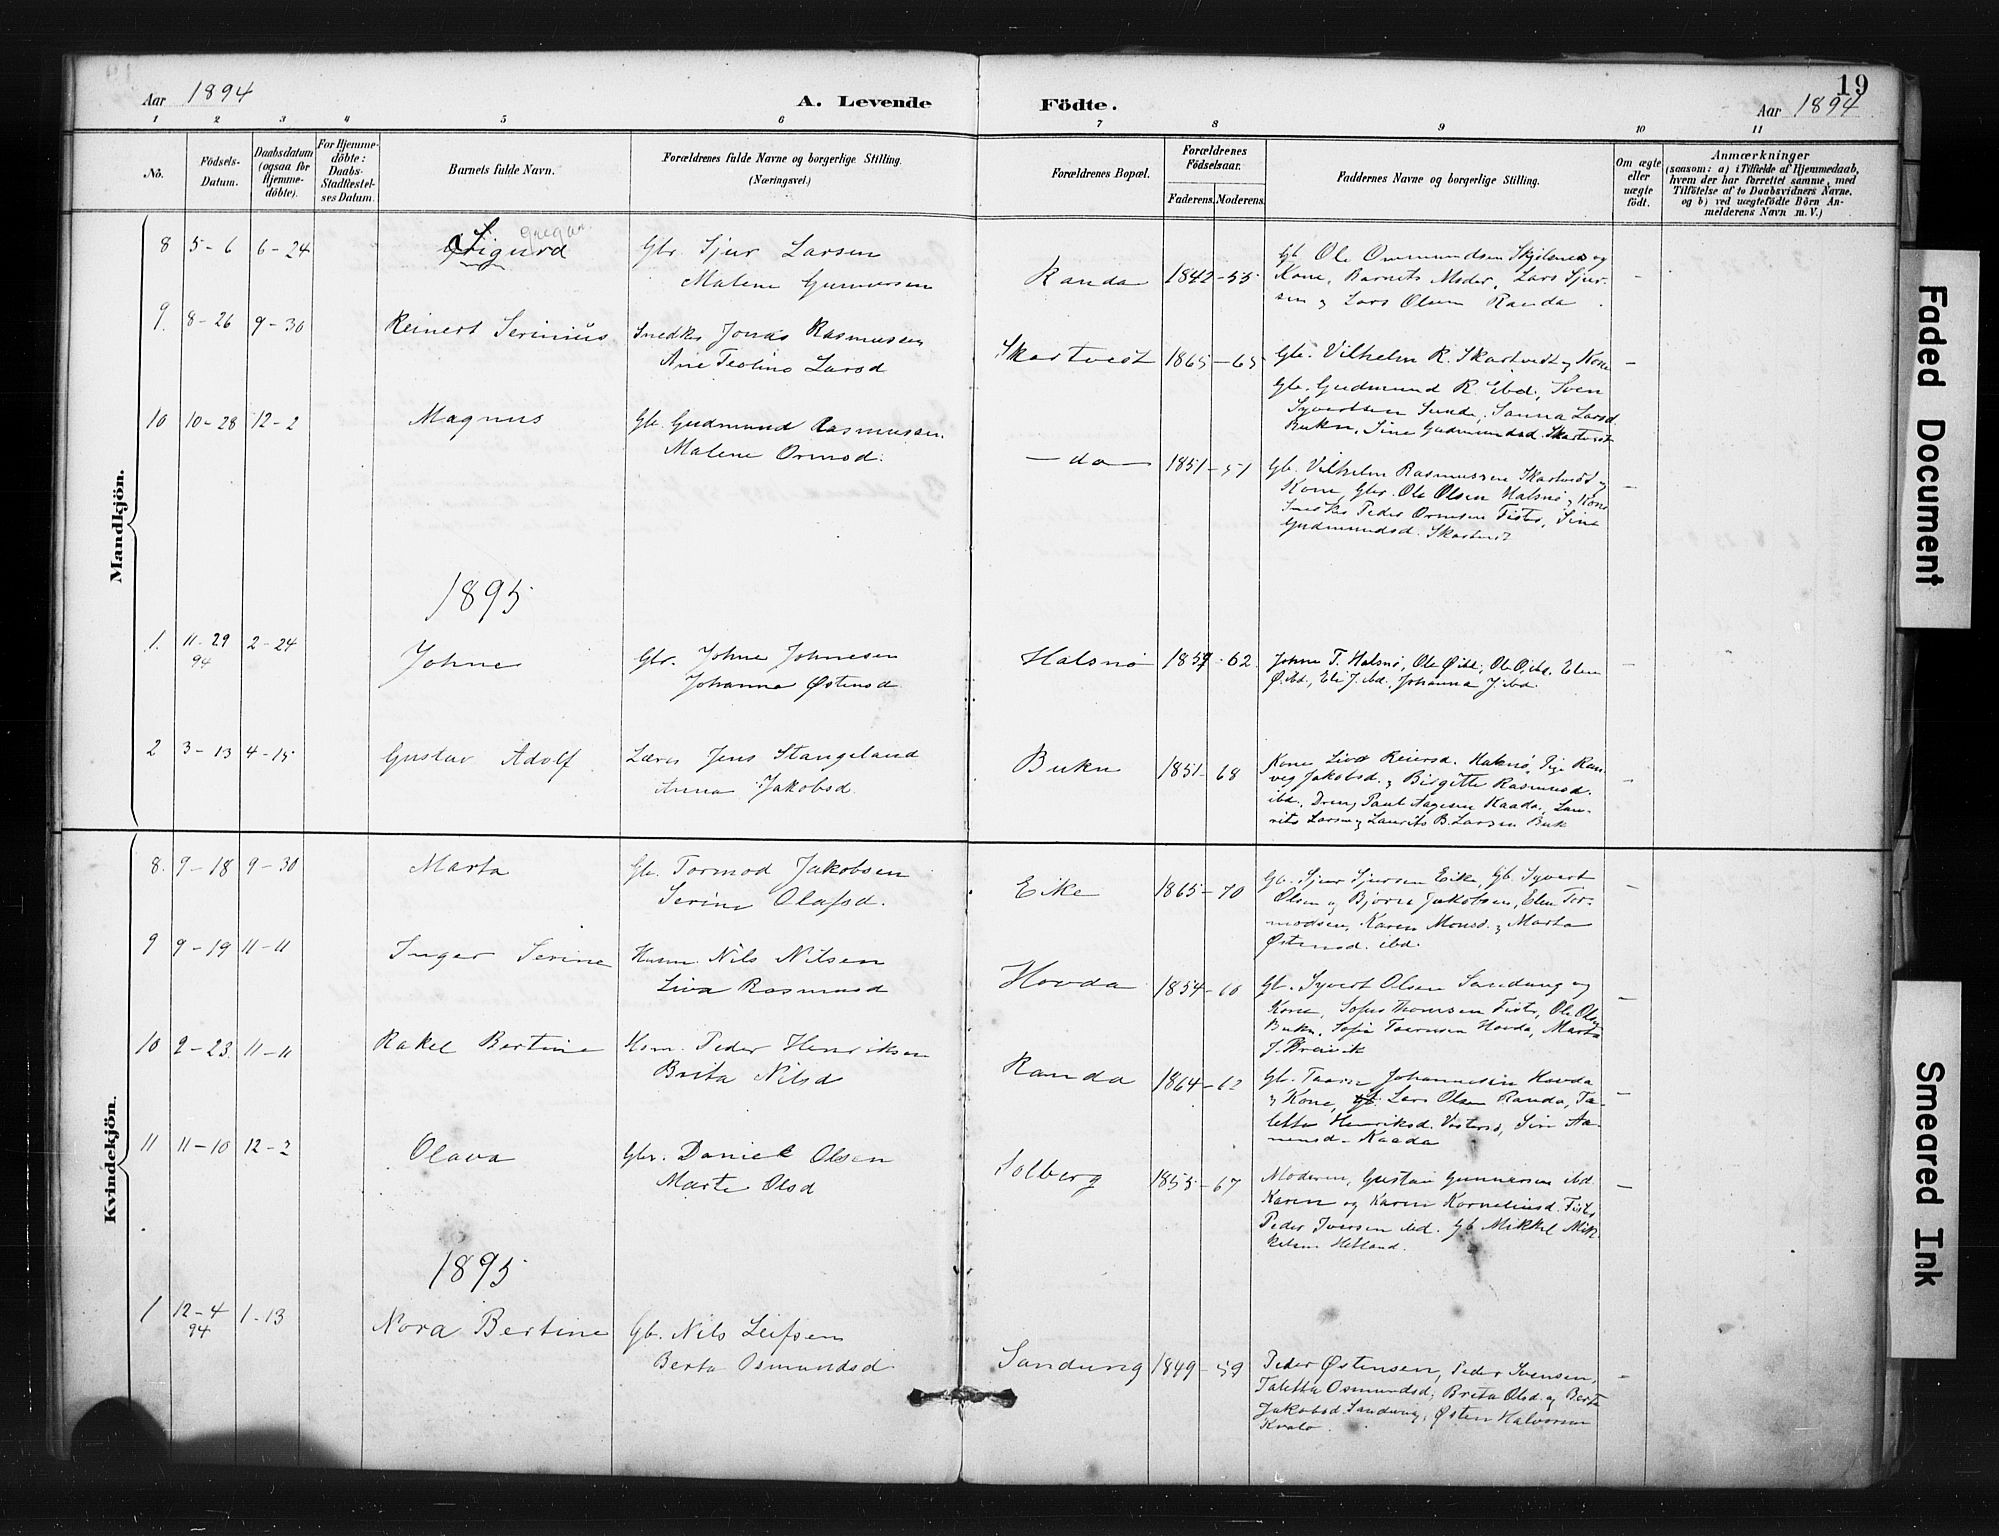 19
Aar 1894 A. Levende Födte. Aar 1894
1 2 3 4 5 6 7 8 9 10 11
No.
Födsels-
Datum.
Daabsdatum
(ogsaa for
Hjemme-
döbte).
For Hjemme-
döbte:
Daabs-
Stadfæstel-
ses Datum.
Barnets fulde Navn.
Forældrenes fulde Navne og borgerlige Stilling.
(Næringsvei.)
Forældrenes Bopæl.
Forældrenes
Födselsaar.
Faderens. Moderens.
Faddernes Navne og borgerlige Stilling.
Om ægte
eller
uægte
født.
Anmærkninger
(saasom: a) i Tilfælde af Hjemmedaab,
hvem der har forrettet samme, med
Tilføielse af to Daabsvidners Navne.
og b) ved uægtefødte Børn An-
melderens Navn m. V.)
Mandkjön.
8 5-6 6-24 Sigurd Gbr. Sjur Larsen
Malene Gunnarsen
Randa 1842-55 Gb. Ole Ommundsen og
Kone, Barnets Moder, Lars Sjur-
sen og Lars Olsen Randa
9. 8-26 9-30 Reinert Serinius Snedker Jonas Rasmussen
Ane Larsd
Skartveit 1865-65 Gb. Vilhelm R. Skartvedt og Kone
Gb. Gudmund R. Ibd, Sven
Syvertsen Sunde, Sanna Larsd
Bukn, Sine Gudmundsd. Skartveit
10 10-28 12-2 Magnus Gb. Gudmund Rasmussen
Malene Ormsd.
-do- 1851-51 Gb. Vilhelm Rasmussen Skartvedt og
Kone, Gbr. Ole Olsen Halsnø og Kone
Peder Ormsen Fister, Sine
Gudmundsd. Skartvedt
1895
1. 11-29 94 2-24 Johne Gbr. Johne Johnesen
Johanna Østensd.
Halsnø 1859-62. Johne T. Halsnø, Ole Ø. ibd., Ole O. ibd. Elen
Ø. ibd., Eli J. ibd., Johanna J. ibd.
2 3-13 4-15 Gustav Adolf Lærer Jens Stangeland
Anna Jakobsd.
Bukn 1851-68 Kone Liva Reiersd. Halsnø, Pige Ran-
veig Jakobsd. og Birgitte Rasmusd.
ibd., Dreng Paul Aagesen Kaada, Lau-
rits Larsen og Laurits B. Larsen Buk
Kvindekjön.
8. 9-18 9-30 Marta Gb. Tormod Jakobsen
Serine Olafsd.
Eike 1865-70 Gb. Sjur Sjursen Eike, Gb. Syvert
Olsen og Bjorne Jakobsen, Elen Tor-
modsen, Karen Monsd. og Marta
Østensd. ibd.
9 9-19 11-11 Inger Serine Husm. Nils Nilsen
Liva Rasmusd
Hovda 1854-60 Gb. Syvert Olsen Sandung og
Kone, Sofus Thomsen Fister, Ole Olsen
Bukn, Sofie Taarnsen Hovda, Marta
J. Breivik
10 9-23 11-11 Rakel Bertine Hsm. Peder Henriksen
Brita Nilsd
Randa 1864-62 Gb. Johannesen Hovda
og Kone, Gb. Lars Olsen Randa, Ta-
letta Henriksd. Siri Aa-
nensd. Kaada
11 11-10 12-2 Olava Gbr. Daniel Olsen
Marte Olsd
Solberg 1855-67 Moderen, Gustav Gunnarsen ibd.
Karen og Karen Korneliusd. Fister
Peder Iversen ibd. Gb Mikkel Mik-
kelsen Hetland.
1895
1 12-4 94 1-13 Nora Bertine Gb. Nils Leifsen
Berta Osmundsd.
Sandung 1849-59 Peder Østensen, Peder Svensen,
Taletta Osmundsd; Brita Olsd. og Berta
Jakobsd. Sandung, Østen Halvorsen
Kvalø.
Faded Document
Smeared Ink